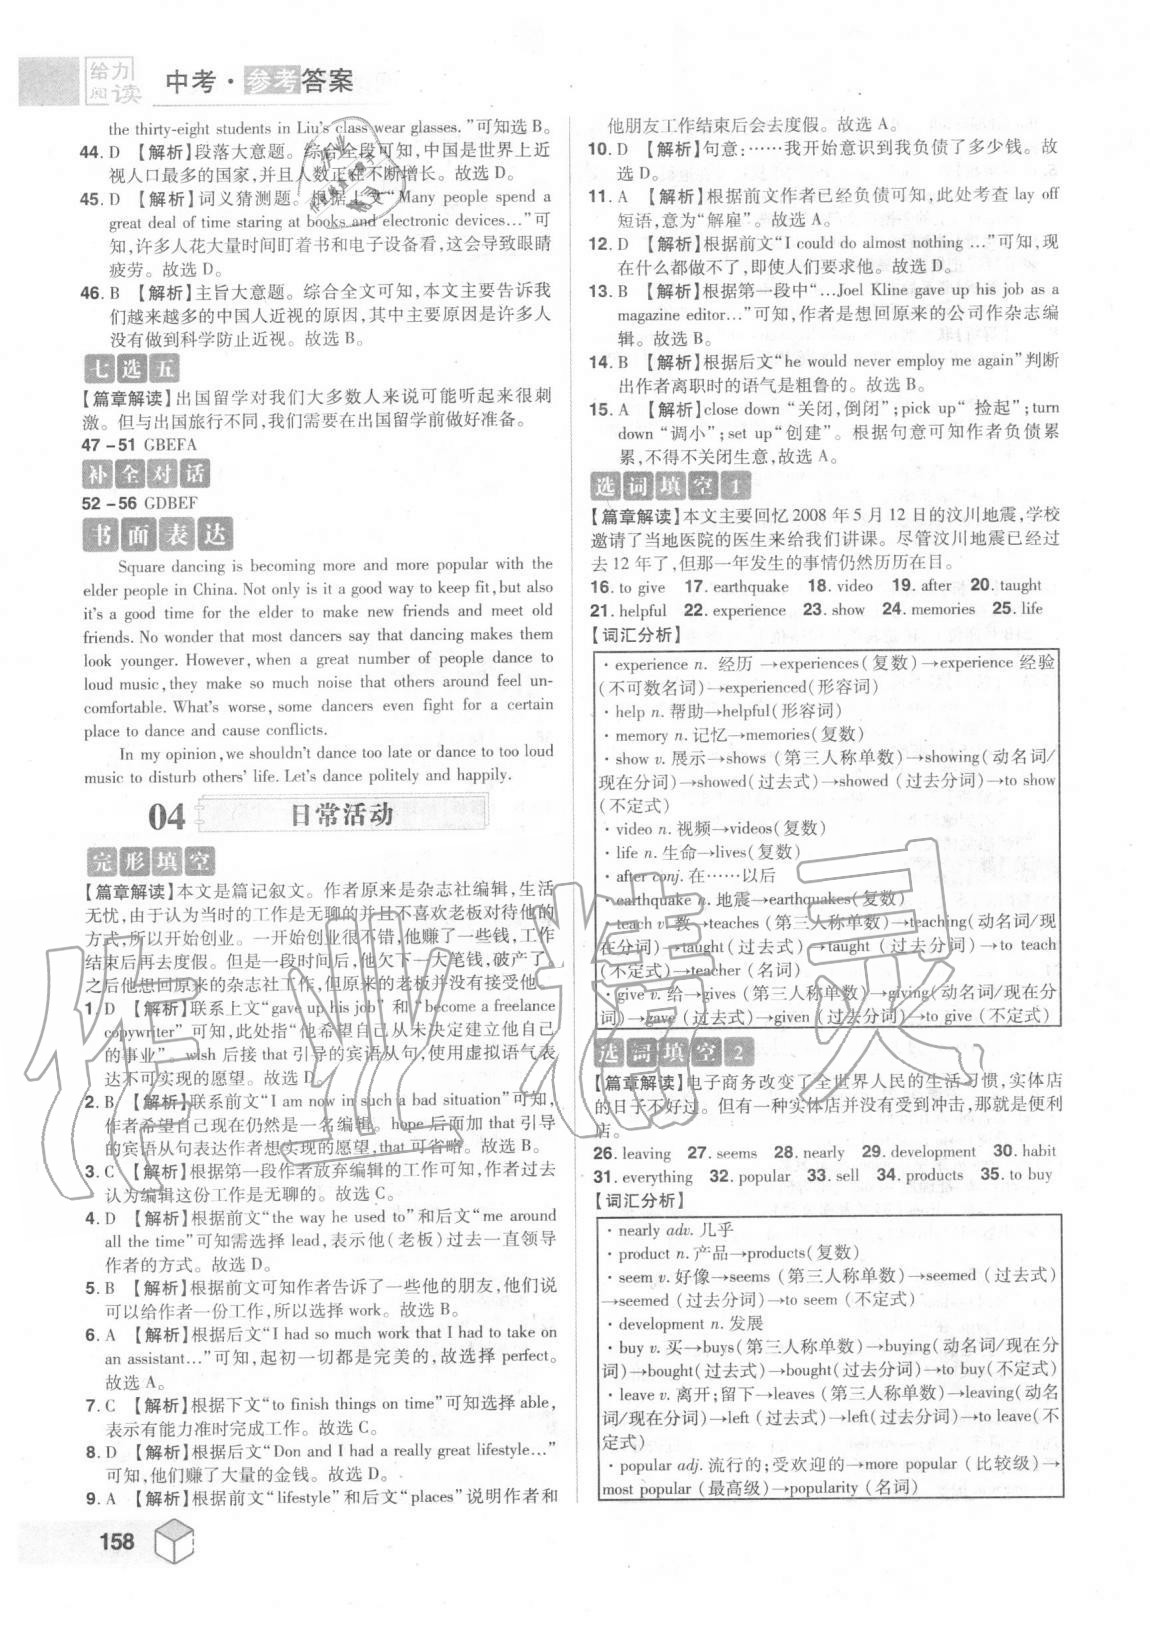 给力
阅读
中考·参考答案
the thirty-eight students in Liu's class wear glasses.”可知选 B。
44. D 【解析】段落大意题。综合全段可知,中国是世界上近
视人口最多的国家,并且人数正在不断增长。故选 D。
45. D 【解析】词义猜测题。根据上文“Many people spend a
great deal of time staring at books and electronic devices…”可
知,许多人花大量时间盯着书和电子设备看,这会导致眼睛
疲劳。故选 D。
46. B 【解析】主旨大意题。综合全文可知,本文主要告诉我
们越来越多的中国人近视的原因,其中主要原因是许多人
没有做到科学防止近视。故选 B。
七选五
【篇章解读】出国留学对我们大多数人来说可能听起来很刺
激。但与出国旅行不同,我们需要在出国留学前做好准备。
47 - 51 GBEFA
补全对话
52 - 56 GDBEF
书面表达
Square dancing is becoming more and more popular with the
elder people in China. Not only is it a good way to keep fit, but also
it's a good time for the elder to make new friends and meet old
friends. No wonder that most dancers say that dancing makes them
look younger. However, when a great number of people dance to
loud music, they make so much noise that others around feel un-
comfortable. What's worse, some dancers even fight for a certain
place to dance and cause conflicts.
In my opinion, we shouldn't dance too late or dance to too loud
music to disturb others' life. Let's dance politely and happily.
04 日常活动
完形填空
【篇章解读】本文是篇记叙文。作者原来是杂志社编辑,生活
无忧,由于认为当时的工作是无聊的并且不喜欢老板对待他的
方式,所以开始创业。一开始创业很不错,他赚了一些钱,工作
结束后再去度假。但是一段时间后,他欠下一大笔钱,破产了。
之后他想回原来的杂志社工作,但原来的老板并没有接受他。
1. D 【解析】联系上文“gave up his job”和“become a freelance
copywriter”可知,此处指“他希望自己从未决定建立他自己
的事业”。wish 后接 that 引导的宾语从句,使用虚拟语气表
达不可实现的愿望。故选 D。
2. B 【解析】联系前文“I am now in such a bad situation”可知,
作者希望自己现在仍然是一名编辑。hope 后加 that 引导
的宾语从句表达作者想实现的愿望,that 可省略。故选 B。
3. C 【解析】根据第一段作者放弃编辑的工作可知,作者过去
认为编辑这份工作是无聊的。故选 C。
4. D 【解析】根据前文“the way he used to”和后文“me around
all the time”可知需选择 lead,表示他(老板)过去一直领导
作者的方式。故选 D。
5. B 【解析】根据前文可知作者告诉了一些他的朋友,他们说
可以给作者一份工作,所以选择 work。故选 B。
6. A 【解析】根据后文“I had so much work that I had to take on
an assistant…”可知,起初一切都是完美的,故选择 perfect。
故选 A。
7. C 【解析】根据下文“to finish things on time”可知选择 able,
表示有能力准时完成工作。故选 C。
8. D 【解析】根据后文“Don and I had a really great lifestyle…”
可知,他们赚了大量的金钱。故选 D。
9. A 【解析】根据前文“lifestyle”和后文“places”说明作者和
158
他朋友工作结束后会去度假。故选 A。
10. D 【解析】句意:……我开始意识到我负债了多少钱。故
选 D。
11. A 【解析】根据前文作者已经负债可知,此处考查 lay off
短语,意为“解雇”。故选 A。
12. D 【解析】根据前文“I could do almost nothing …”可知,现
在什么都做不了,即使人们要求他。故选 D。
13. B 【解析】根据第一段中“…Joel Kline gave up his job as a
magazine editor…”可知,作者是想回原来的公司作杂志编
辑。故选 B。
14. B 【解析】根据后文“he would never employ me again”判断
出作者离职时的语气是粗鲁的。故选 B。
15. A 【解析】close down “关闭,倒闭”;pick up“ 捡起”;turn
down “调小”;set up“创建”。根据句意可知作者负债累
累,不得不关闭生意,故选 A。
选词填空1
【篇章解读】本文主要回忆 2008 年 5 月 12 日的汶川地震,学校
邀请了当地医院的医生来给我们讲课。尽管汶川地震已经过
去 12 年了,但那一年发生的事情仍然历历在目。
16. to give 17. earthquake 18. video 19. after 20. taught
21. helpful 22. experience 23. show 24. memories 25. life
【词汇分析】
· experience n. 经历→experiences(复数)→experience 经验
(不可数名词)→experienced(形容词)
· help n. 帮助→helpful(形容词)
· memory n. 记忆→memories(复数)
· show v. 展示→shows (第三人称单数)→showing(动名词/
现在分词)→showed(过去式)→showed (过去分词)→to show
(不定式)
· video n. 视频→videos(复数)
· life n. 生命→lives(复数)
· after conj. 在……以后
· earthquake n. 地震→earthquakes(复数)
· teach v. 教→teaches (第三人称单数)→teaching(动名词/现
在分词)→taught(过去式)→taught (过去分词)→to teach
(不定式)→teacher (名词)
· give v. 给→gives (第三人称单数)→giving(动名词/现在分
词)→gave (过去式)→given (过去分词)→to give (不定式)
选词填空2
【篇章解读】电子商务改变了全世界人民的生活习惯,实体店
的日子不好过。但有一种实体店并没有受到冲击,那就是便利
店。
26. leaving 27. seems 28. nearly 29. development 30. habit
31. everything 32. popular 33. sell 34. products 35. to buy
【词汇分析】
· nearly adv. 几乎
· product n. 产品→products(复数)
· seem v. 好像→seems (第三人称单数)→seemed (过去式)
→seemed (过去分词)→to seem (不定式)
· development n. 发展
· buy v. 买→buys(第三人称单数)→buying(动名词/现在分
词)→bought(过去式)→bought(过去分词)→to buy(不定式)
· leave v. 离开;留下→leaves (第三人称单数)→leaving(动名
词/现在分词)→left (过去式)→left(过去分词)→to leave(不
定式)
· popular adj. 流行的;受欢迎的→more popular (比较级)→
most popular (最高级)→popularity (名词)
作业精灵